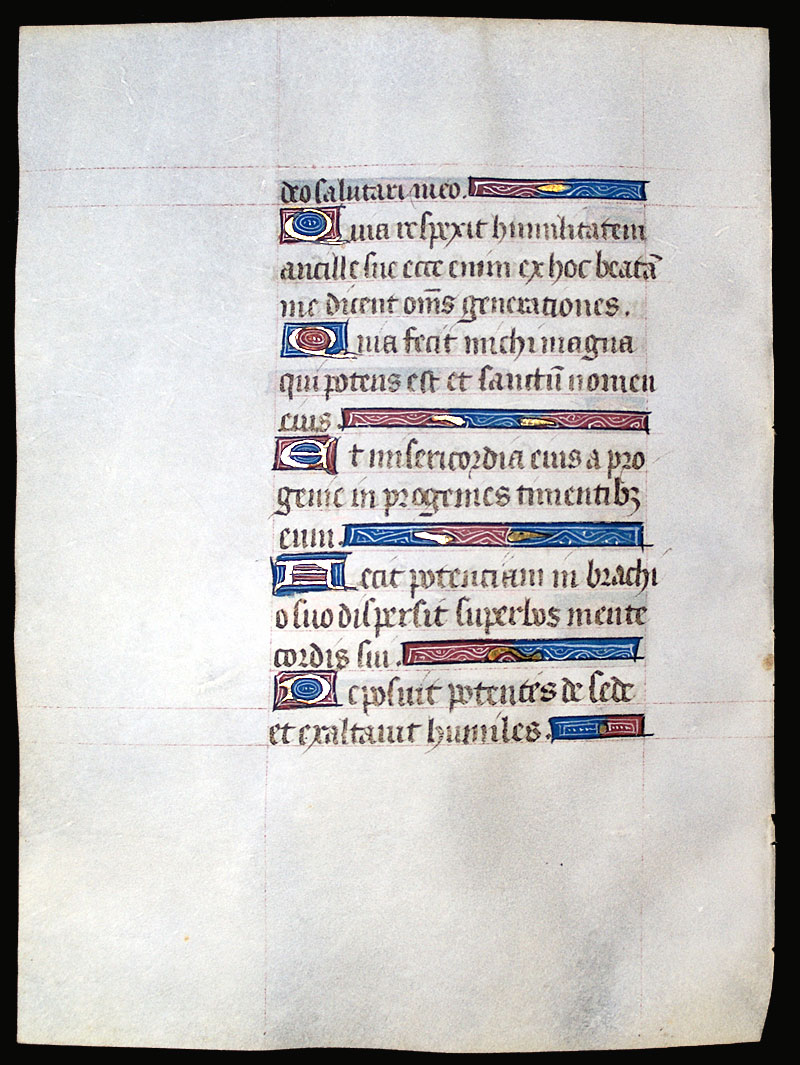 deo salutari meo.
Quia respexit humilitatem
ancille sue ecce enim ex hoc beatā
me dicent om̄s generationes.
Quia fecit michi magna
qui potens est et sanctū nomen
eius.
Et misericordia eius a pro
genie in progenies timentibꝫ
eum.
Fecit potentiam in brachi
o suo dispersit superbos mente
cordis sui.
Deposuit potentes de sede
et exaltavit humiles.